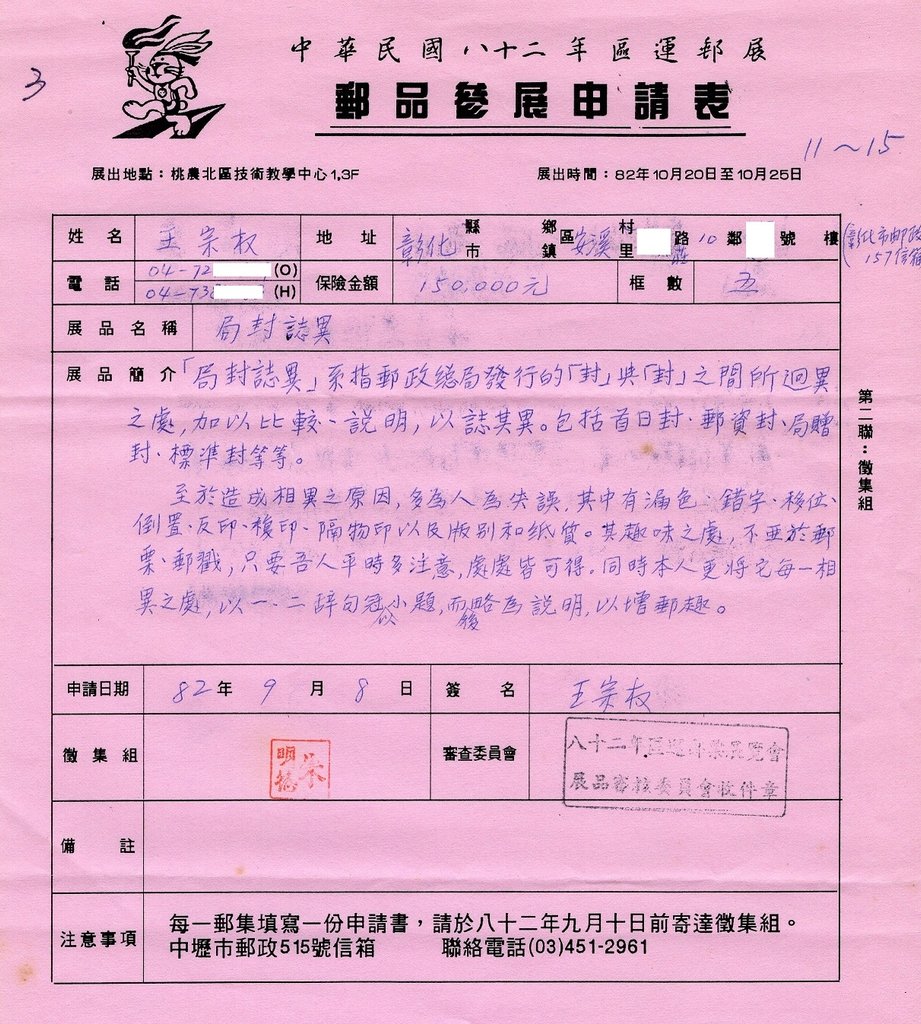 3
中華民國八十二年區運郵展
郵品參展申請表
11～15
展出地點：桃農北區技術教學中心1,3F
展出時間：82年10月20日至10月25日
姓名 王宗权 地址 彰化 縣市 鄉鎮區 安溪 村里 路 10 鄰 號 樓 (彰化市郵政157信箱
電話 04-72 (O) 保險金額 150,000元 框數 五
04-738 (H)
展品名稱 局封誌異
展品簡介 「局封誌異」系指郵政總局發行的「封」與「封」之間所迥異
之處，加以比較、説明，以誌其異。包括首日封、郵資封、局贈
封、標準封等等。
至於造成相異之原因，多為人為失誤，其中有漏色、錯字、移位、
倒置、反印、複印、隔物印以及版别和纸质。其趣味之處，不亚於郵
票、郵戳，只要吾人平時多注意，處處皆可得。同時本人更將它每一相
異之處，以一、二辞句冠以小題，而後略為説明，以增郵趣。
第二聯：徵集組
申請日期 82年9月8日 簽名 王宗权
徵集組 審查委員會
八十二年區運郵票展覽會
展品審核委員會收件章
備註
注意事項 每一郵集填寫一份申請書，請於八十二年九月十日前寄達徵集組。
中壢市郵政515號信箱 聯絡電話(03)451-2961